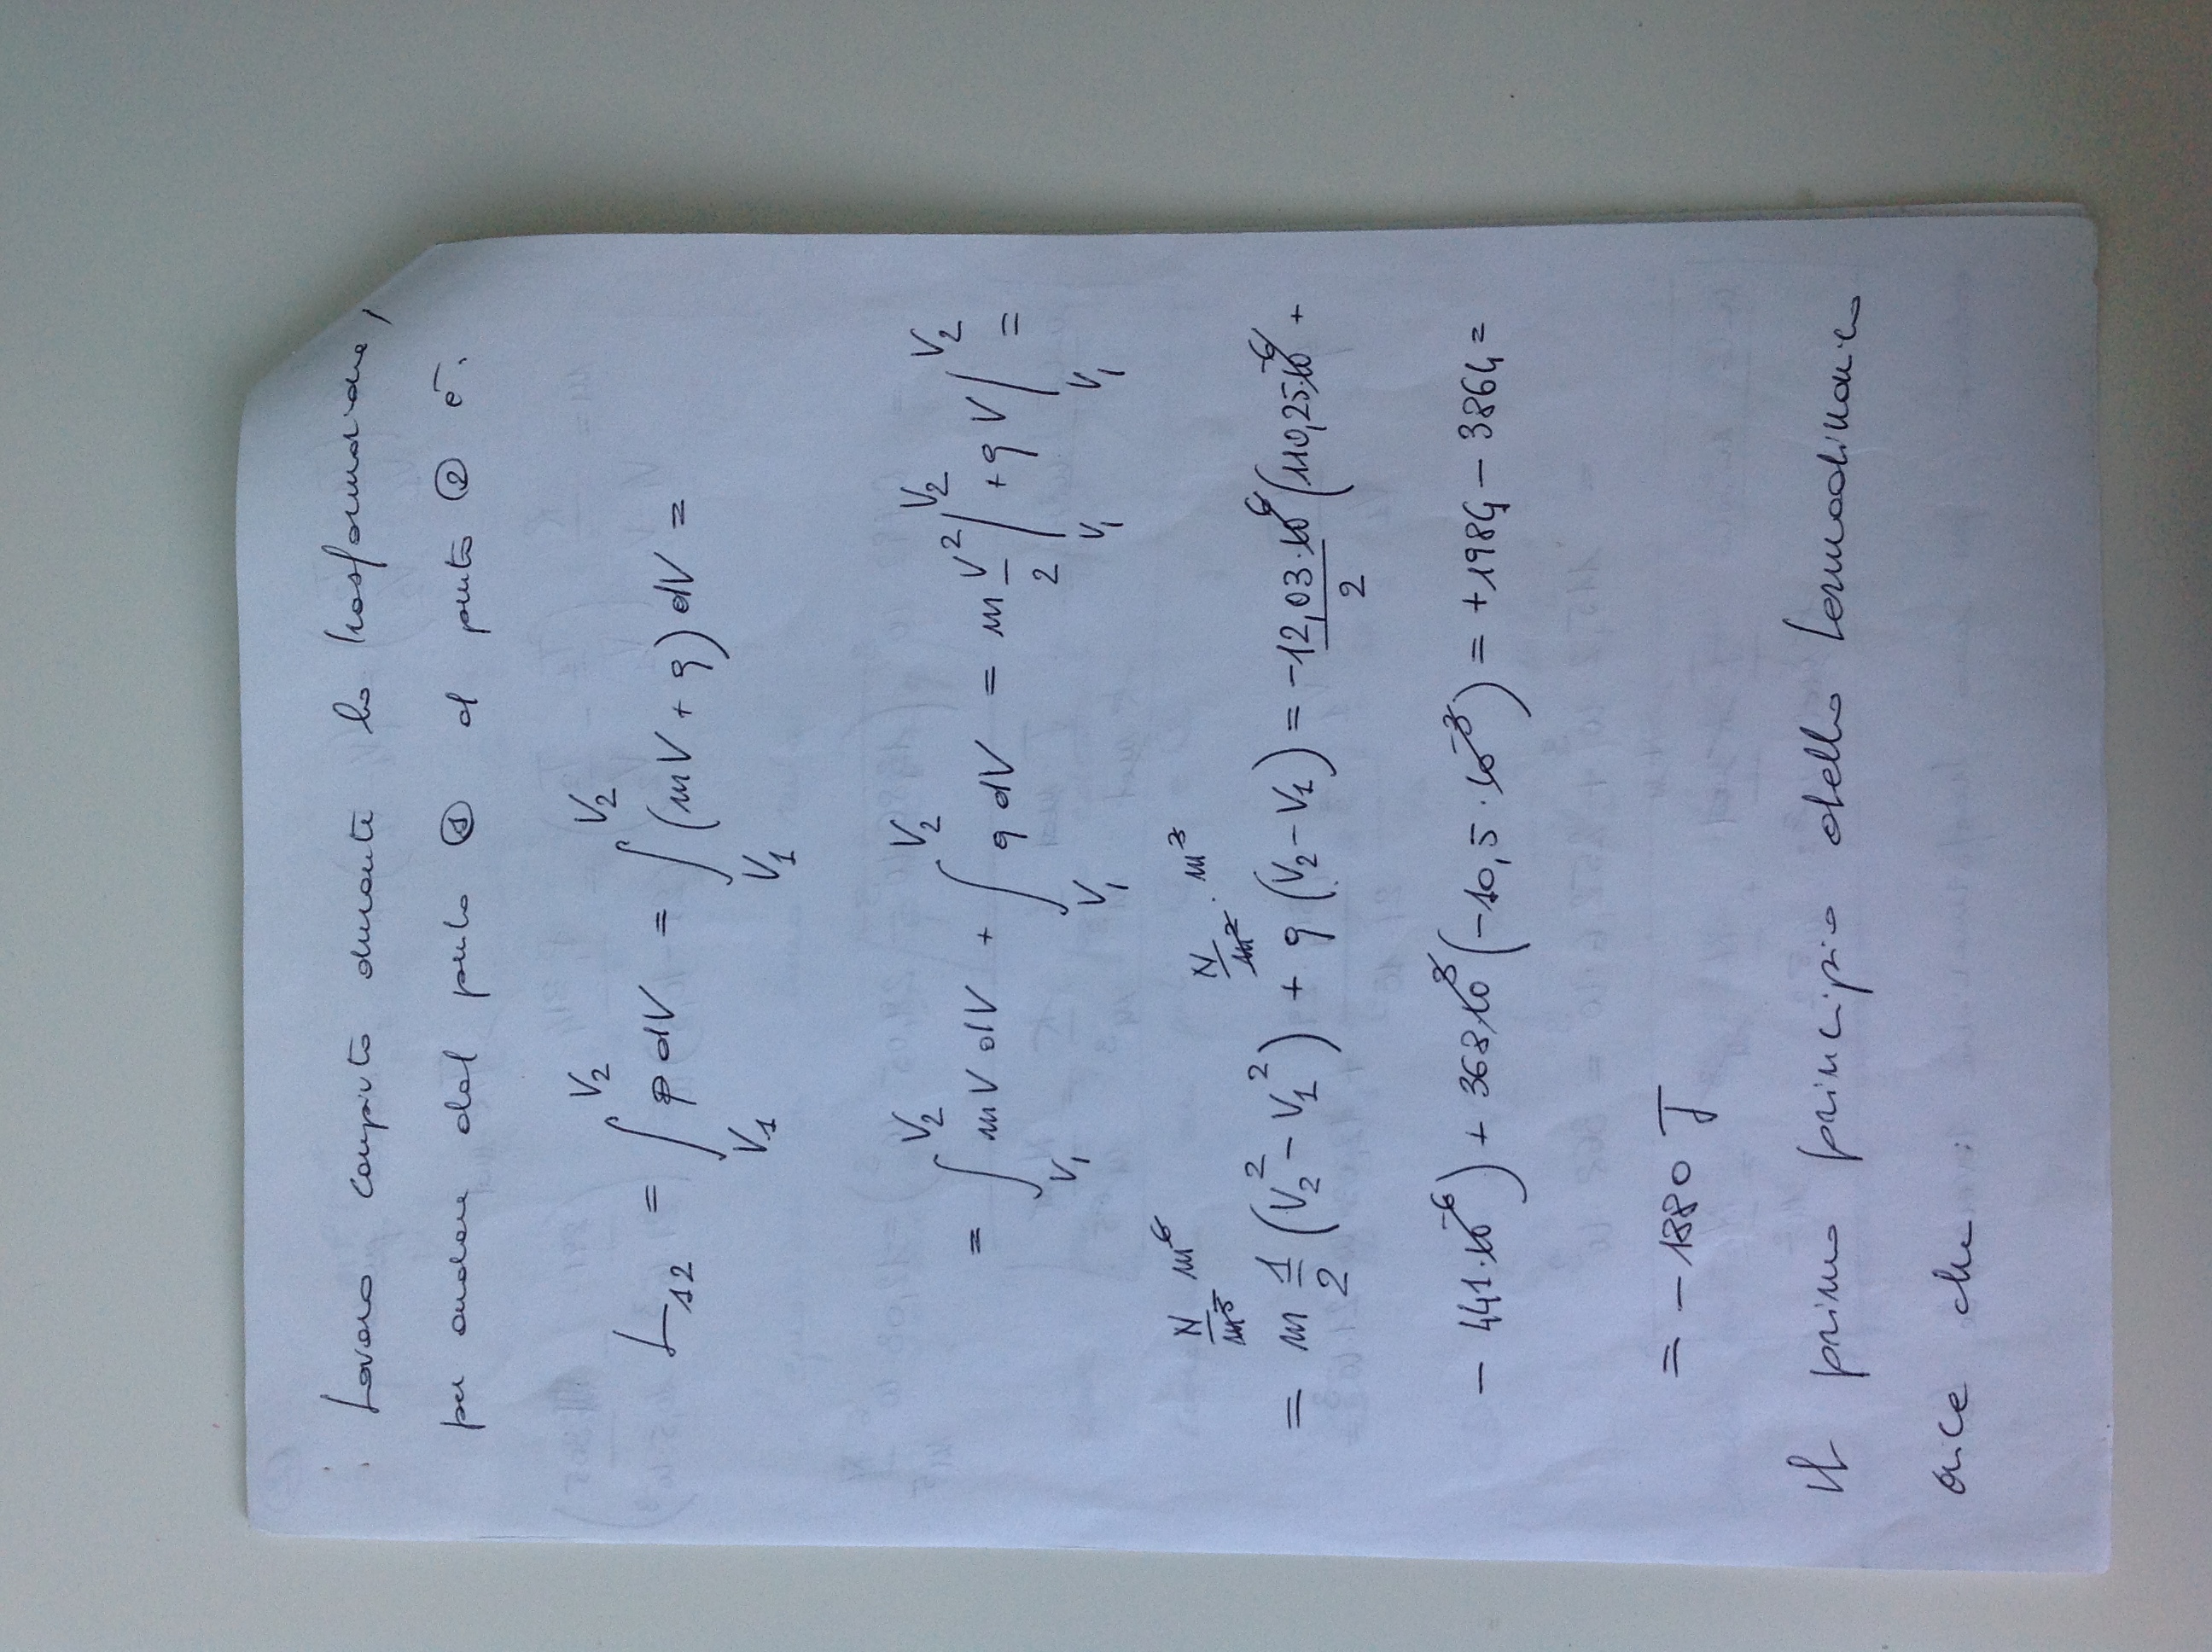 Lavoro compiuto durante la trasformazione,
per andare dal punto ① al punto ② è:
L₁₂ = ∫_{V₁}^{V₂} p dV = ∫_{V₁}^{V₂} (mV + q) dV =
= ∫_{V₁}^{V₂} mV dV + ∫_{V₁}^{V₂} q dV = m V²/2 |_{V₁}^{V₂} + q V |_{V₁}^{V₂} =
N/m⁵ m⁶ N/m² · m³
= m 1/2 (V₂² - V₁²) + q (V₂ - V₁) = -12,03·10⁶/2 (110,25·10⁻⁶ +
- 441·10⁻⁶) + 368·10³ (-10,5·10⁻³) = +1984 - 3864 =
= - 1880 J
Il primo principio della termodinamica
dice che :